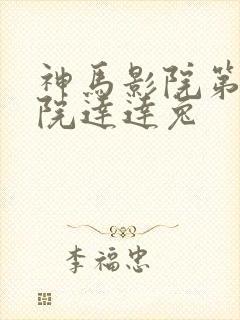 神馬影院第
院達達兔
李福忠